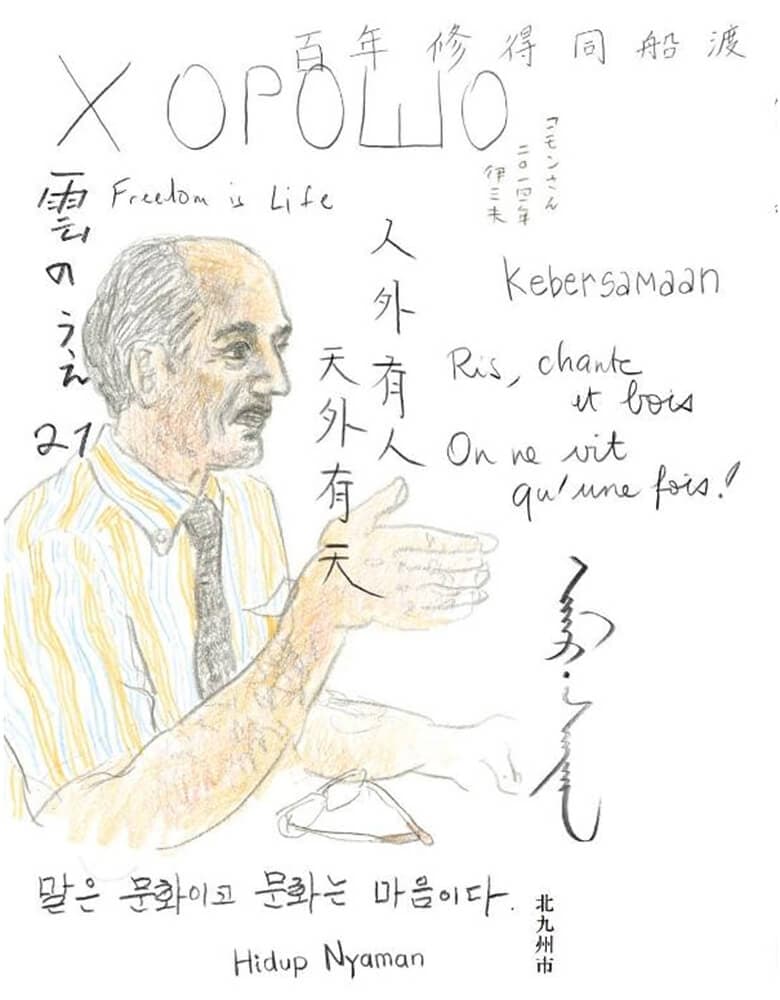 百年修得同船渡
ХОРОШО
コモンさん
二〇一四年
伊三夫
雲のうえ
21
Freedom is Life
人外有人
天外有天
Kebersamaan
Ris, chante
et bois
On ne vit
qu'une fois!
말은 문화이고 문화는 마음이다.
Hidup Nyaman
北九州市